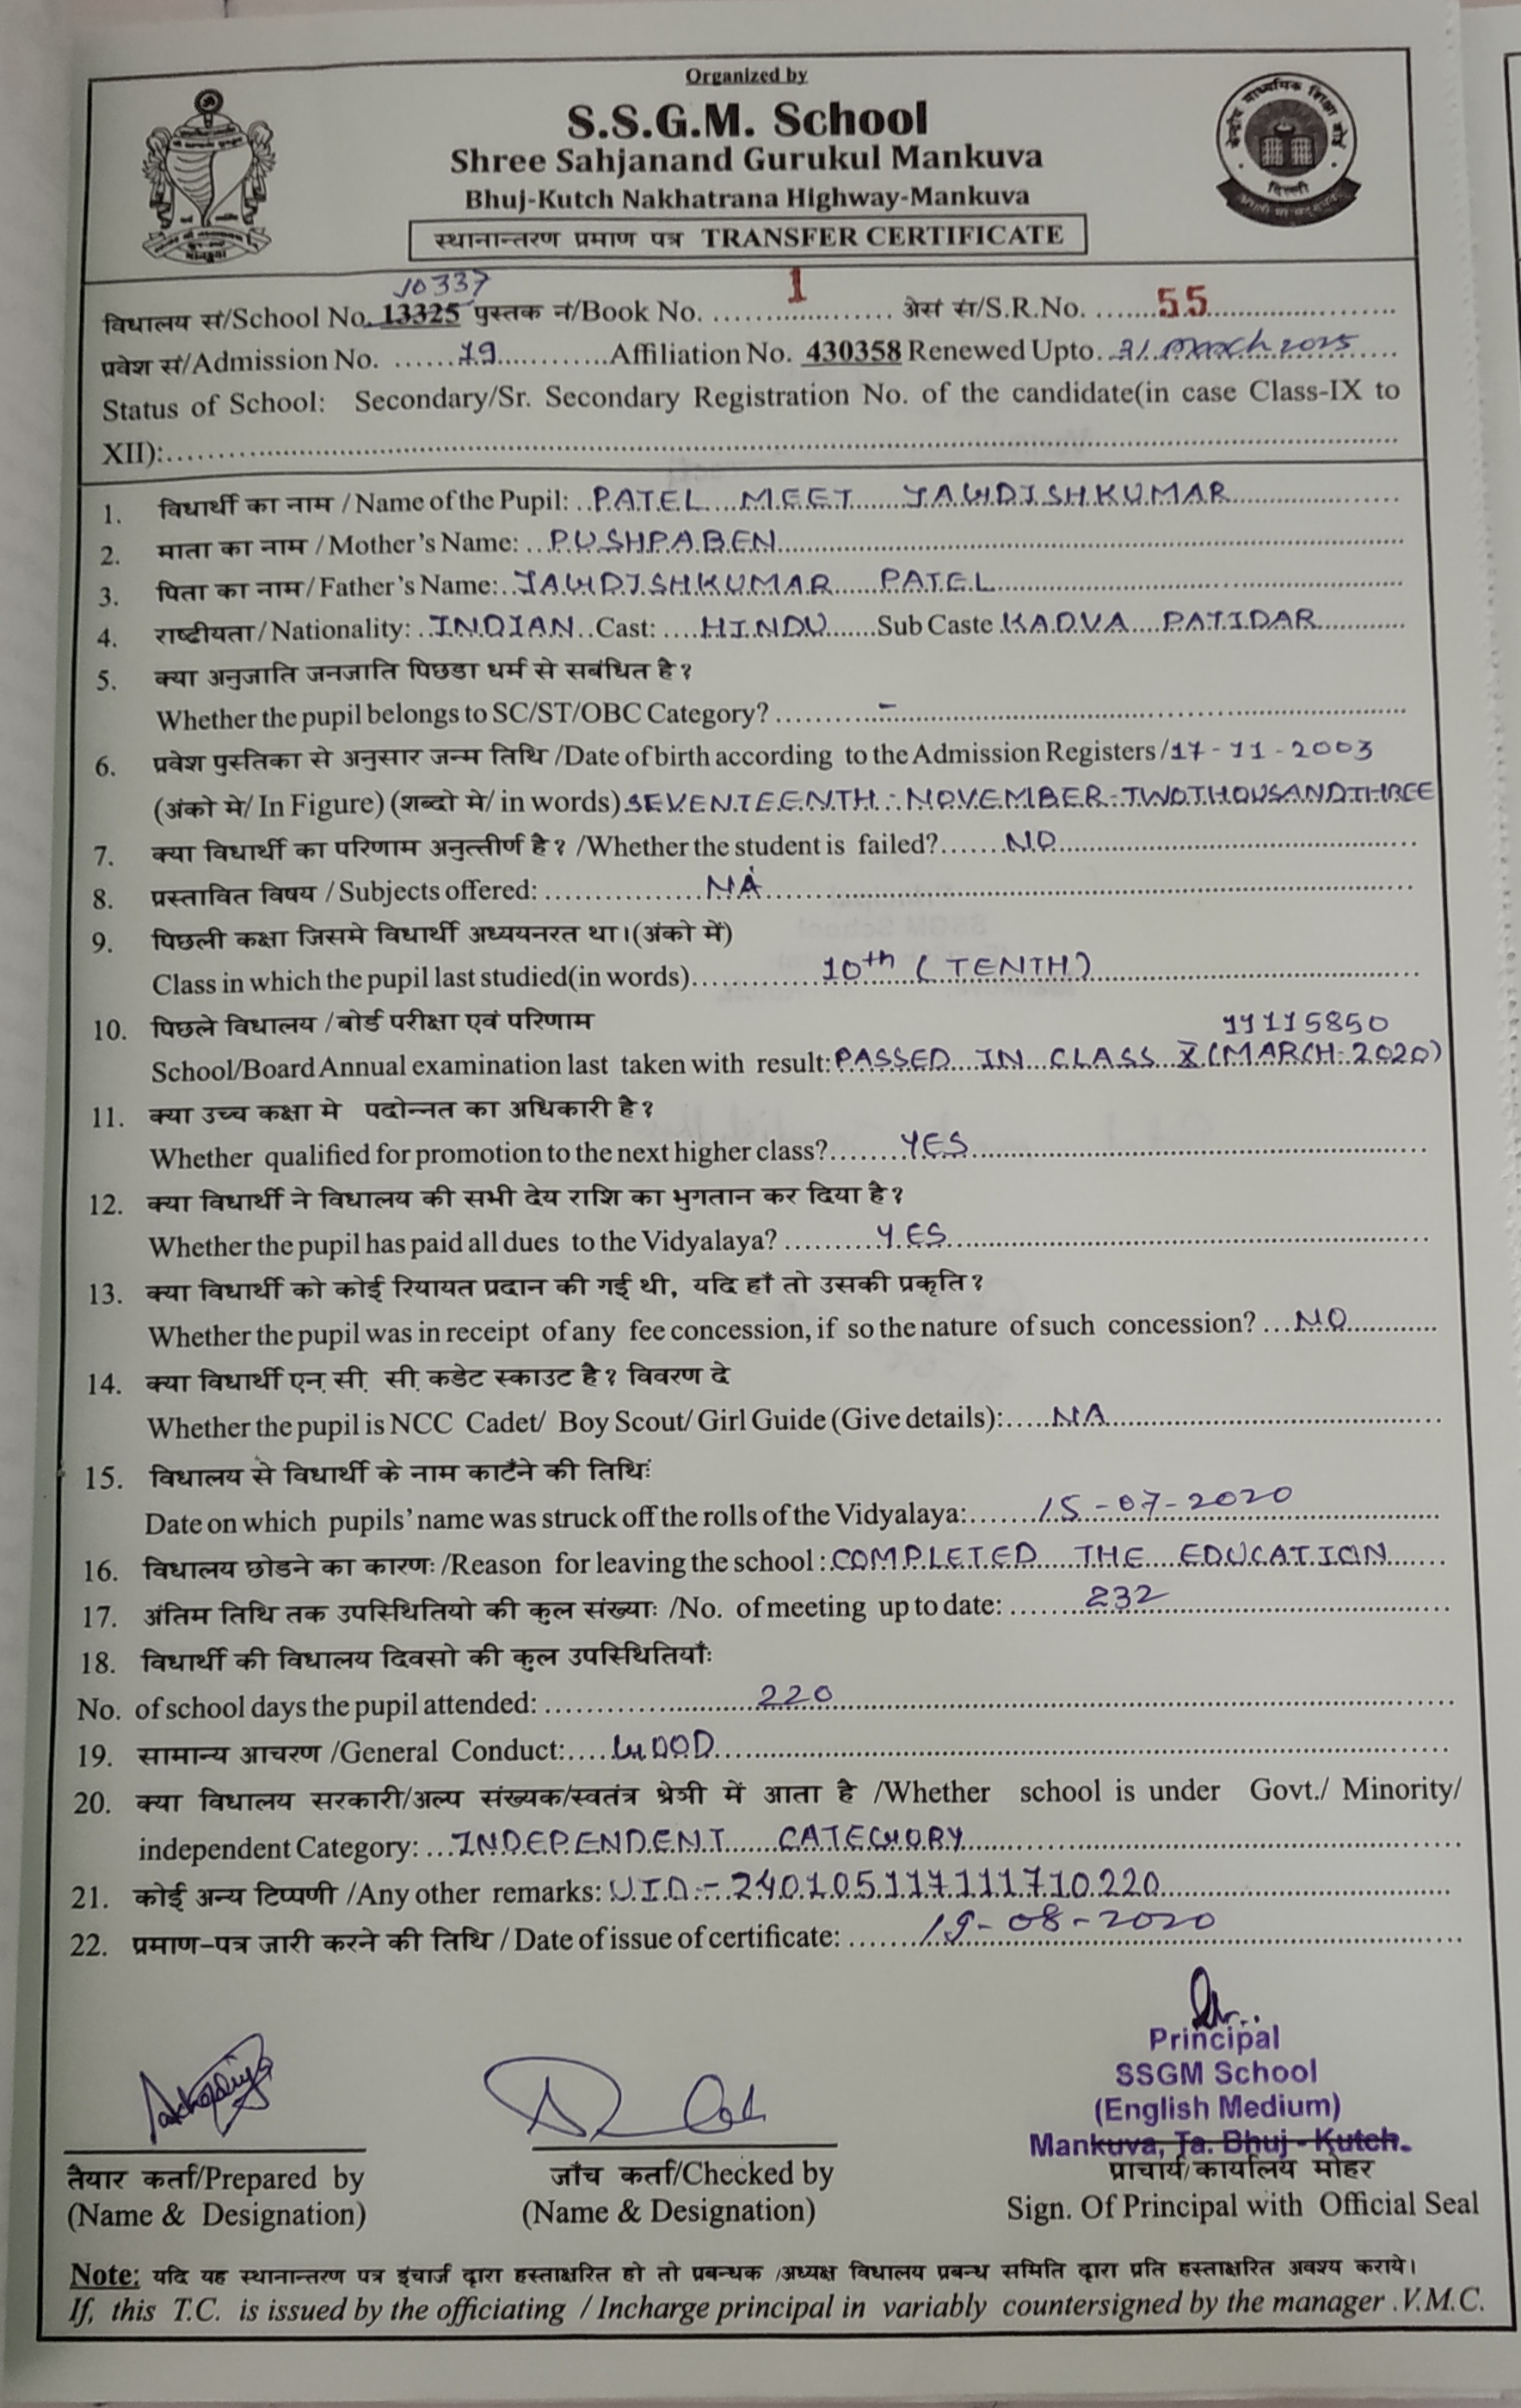 Organized by
S.S.G.M. School
Shree Sahjanand Gurukul Mankuva
Bhuj-Kutch Nakhatrana Highway-Mankuva
स्थानान्तरण प्रमाण पत्र TRANSFER CERTIFICATE
10337
विधालय सं/School No. 13325 पुस्तक नं/Book No. 1 अेस सं/S.R.No. 55
प्रवेश सं/Admission No. 79 Affiliation No. 430358 Renewed Upto. 31 March 2025
Status of School: Secondary/Sr. Secondary Registration No. of the candidate(in case Class-IX to
XII):
1. विधार्थी का नाम / Name of the Pupil: PATEL MEET JAGDISHKUMAR
2. माता का नाम / Mother's Name: PUSHPABEN
3. पिता का नाम / Father's Name: JAGDISHKUMAR PATEL
4. राष्टीयता / Nationality: INDIAN Cast: HINDU Sub Caste KADVA PATIDAR
5. क्या अनुजाति जनजाति पिछडा धर्म से सबंधित है?
Whether the pupil belongs to SC/ST/OBC Category? -
6. प्रवेश पुस्तिका से अनुसार जन्म तिथि /Date of birth according to the Admission Registers/17-11-2003
(अंको मे/ In Figure) (शब्दो मे/ in words) SEVENTEENTH-NOVEMBER-TWOTHOUSANDTHREE
7. क्या विधार्थी का परिणाम अनुत्तीर्ण है? /Whether the student is failed? NO
8. प्रस्तावित विषय / Subjects offered: NA
9. पिछली कक्षा जिसमे विधार्थी अध्ययनरत था।(अंको में)
Class in which the pupil last studied(in words) 10th (TENTH)
10. पिछले विधालय / बोर्ड परीक्षा एवं परिणाम 11115850
School/Board Annual examination last taken with result: PASSED IN CLASS X (MARCH-2020)
11. क्या उच्च कक्षा मे पदोन्नत का अधिकारी है?
Whether qualified for promotion to the next higher class? YES
12. क्या विधार्थी ने विधालय की सभी देय राशि का भुगतान कर दिया है?
Whether the pupil has paid all dues to the Vidyalaya? YES
13. क्या विधार्थी को कोई रियायत प्रदान की गई थी, यदि हाँ तो उसकी प्रकृति?
Whether the pupil was in receipt of any fee concession, if so the nature of such concession? NO
14. क्या विधार्थी एन. सी. सी. कडेट स्काउट है? विवरण दे
Whether the pupil is NCC Cadet/ Boy Scout/ Girl Guide (Give details): NA
15. विधालय से विधार्थी के नाम काटँने की तिथिः
Date on which pupils' name was struck off the rolls of the Vidyalaya: 15-07-2020
16. विधालय छोडने का कारणः /Reason for leaving the school: COMPLETED THE EDUCATION
17. अंतिम तिथि तक उपस्थितियो की कुल संख्याः /No. of meeting up to date: 232
18. विधार्थी की विधालय दिवसो की कुल उपस्थितियाँः
No. of school days the pupil attended: 220
19. सामान्य आचरण /General Conduct: GOOD
20. क्या विधालय सरकारी/अल्प संख्यक/स्वतंत्र श्रेणी में आता है /Whether school is under Govt./ Minority/
independent Category: INDEPENDENT CATEGHORY
21. कोई अन्य टिप्पणी /Any other remarks: U.I.D - 240105117111710220
22. प्रमाण-पत्र जारी करने की तिथि / Date of issue of certificate: 19-08-2020
Principal
SSGM School
(English Medium)
Mankuva, Ta. Bhuj - Kutch.
तैयार कर्ता/Prepared by जाँच कर्ता/Checked by प्राचार्य/कार्यालय मोहर
(Name & Designation) (Name & Designation) Sign. Of Principal with Official Seal
Note: यदि यह स्थानान्तरण पत्र इंचार्ज द्वारा हस्ताक्षरित हो तो प्रबन्धक /अध्यक्ष विधालय प्रबन्ध समिति द्वारा प्रति हस्ताक्षरित अवश्य कराये।
If, this T.C. is issued by the officiating / Incharge principal in variably countersigned by the manager .V.M.C.